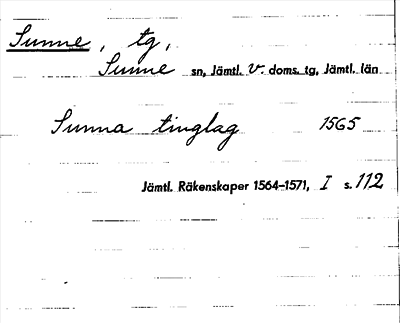 Sunne, tg,
Sunne sn, Jämtl. v. doms. tg, Jämtl. län
Sunna tinglag 1565
Jämtl. Räkenskaper 1564-1571, I s. 112